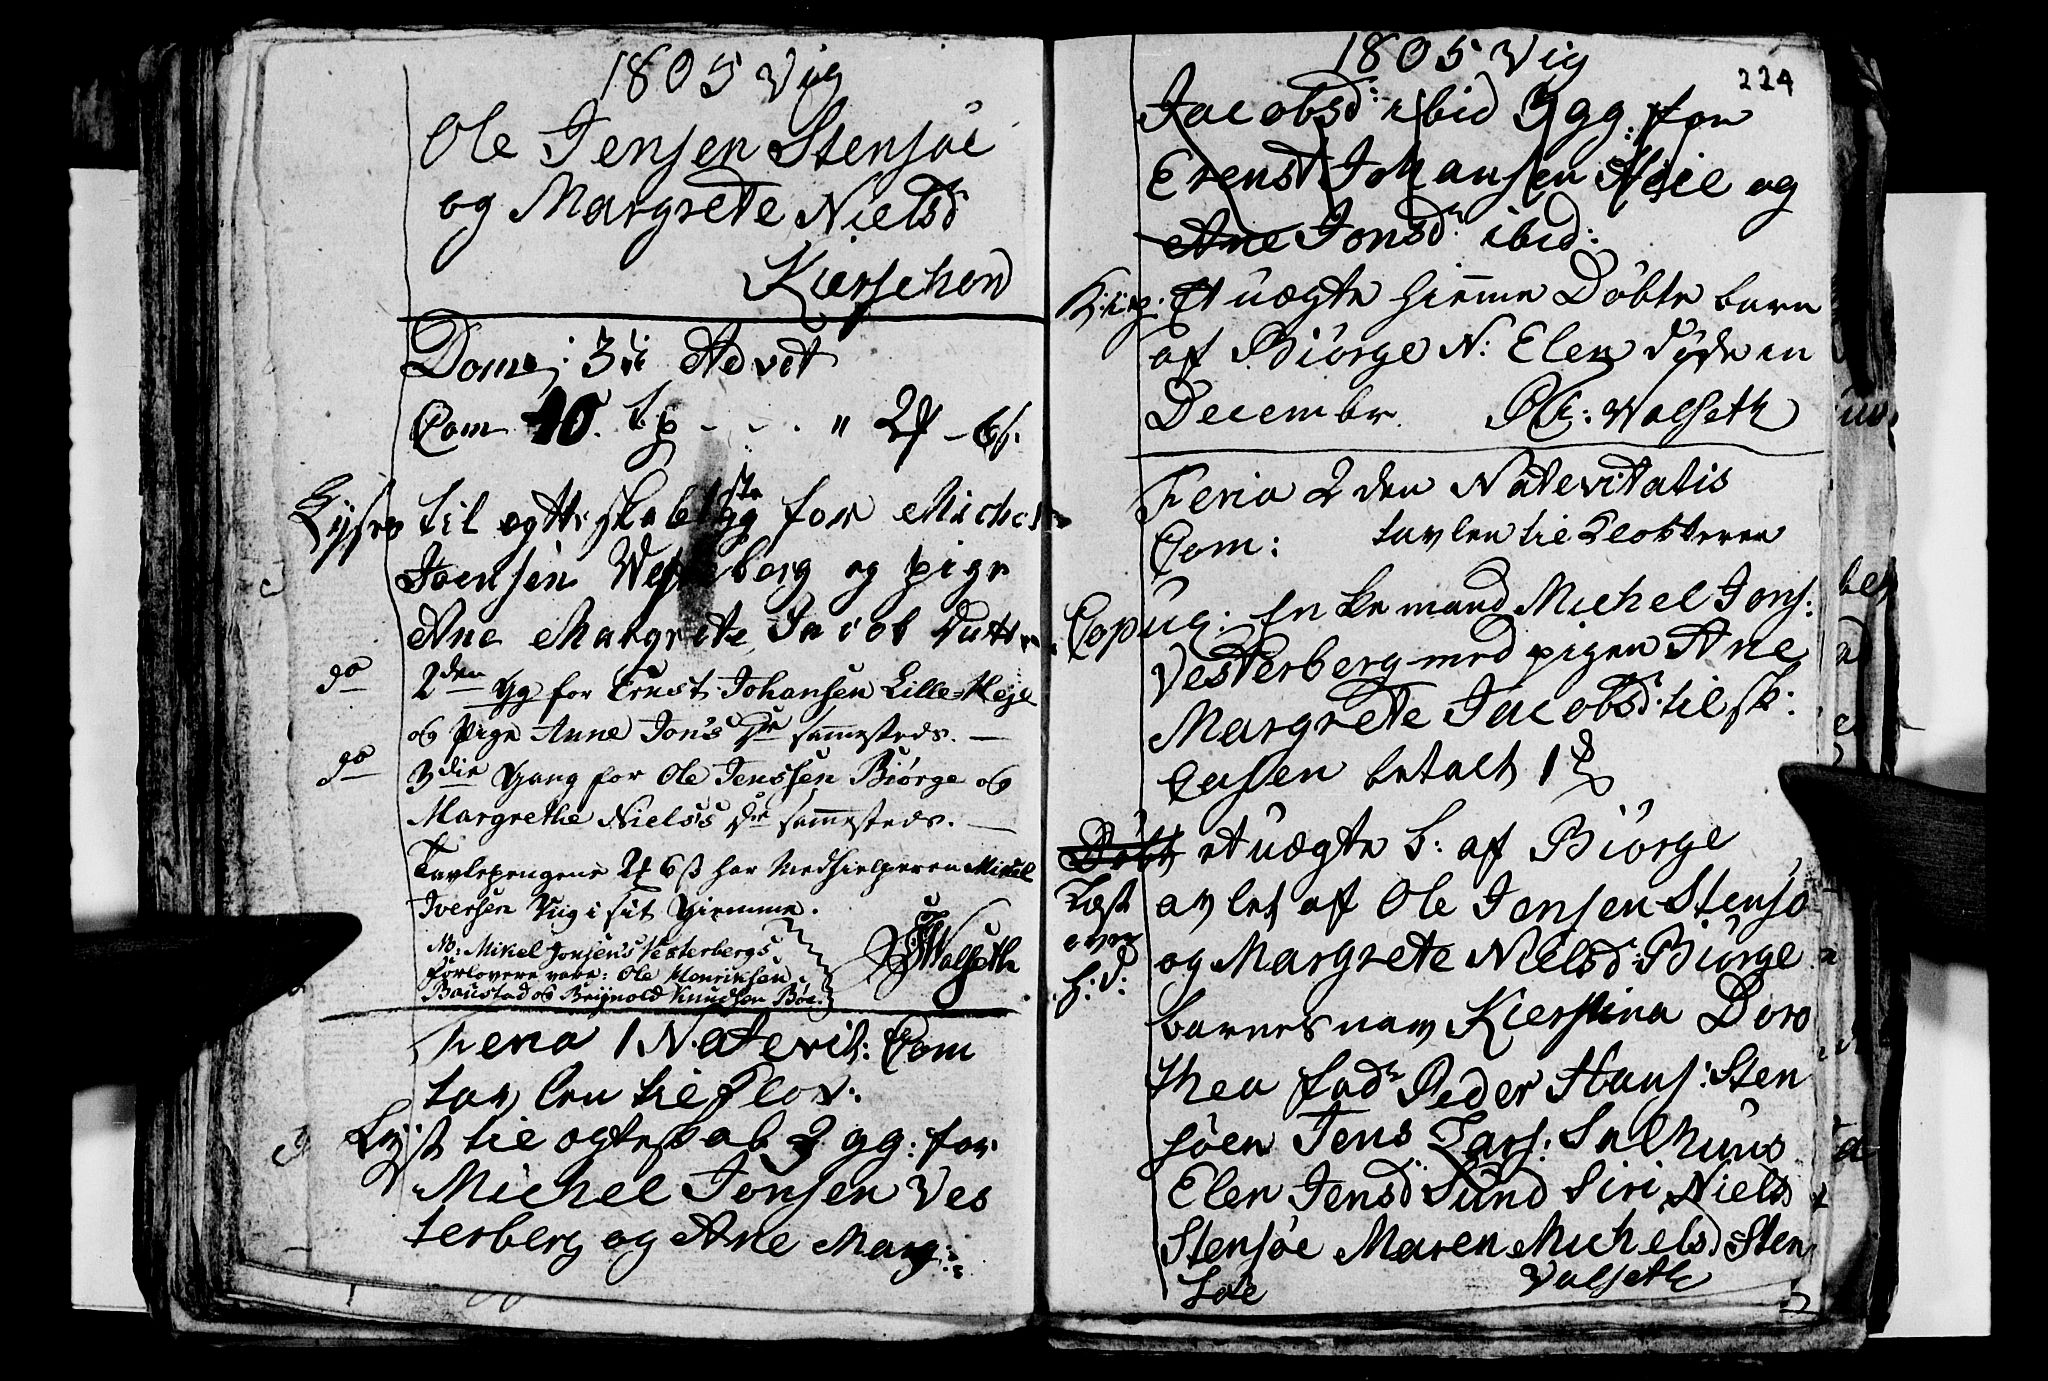 1805 Vig
Ole Jensen Stensøe
og Margrete Nielsd
Kierschow
Dom: 3ii Advet
Com 40. t.p - - . " 2 - 6 ß.
Lyses til egteskab 1ste gg for Michel
Joensen Vesterberg og pige
Ane Margrete Jacob Datter
do 2den Gg for Ernst Johansen Lille=Høje
og Pige Anne Jons Dr sammesteds. —
do 3die Gang for Ole Jenssen Biørge og
Margrethe Nielss Dr sammesteds. —
Tavlepengene 2 6 ß har Medhielperen Mikel
Iversen Viig i sit Giemme.
No. Mikel Jonsens Vesterbergs
Forlovere vare: Ole Henriksen
Baustad og Brynold Knudsen Bøe.
Walseth
Feria 1 Natevit: Com
tavlen til Clok:
Lyst til egteskab 2 gg: for
Michel Jonsen Ves
terberg og Ane Marg:
1805 Vig
224
Jacobsd: ibid 3 gg: for
Erenst Johansen Høie og
Ane Jonsd: ibid:
Et uægte hieme Døbte barn
af Biørge N: Elen døde in
December. Walseth
Feria 2 den Natevitatis
Com: tavlen til Clokkeren
Copul: Enkemand Michel Jons:
Vesterberg med pigen Ane
Margrete Jacobsd: til sk:
Casen betalt 1
Døbt et uægte b: af Biørge
Læst avlet af Ole Jensen Stensø
over og Margrete Nielsd: Biørge
h: d: barnes navn Kierstina Doro
thea fad: Peder Hans: Sten
søen Jens Lars: Salhuus
Elen Jensd Sund Siri Niels
Stensøe Maren Michelsd Sten
søe Valseth